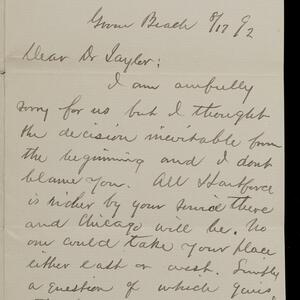 Grove Beach 8/17 92
Dear Dr Taylor:
I am awfully
sorry for us but I thought
the decision inevitable from
the beginning and I dont
blame you. All Hartford
is richer by your being there
and Chicago will be. No
one could take your place
either east or west. Simply
a question of which gains